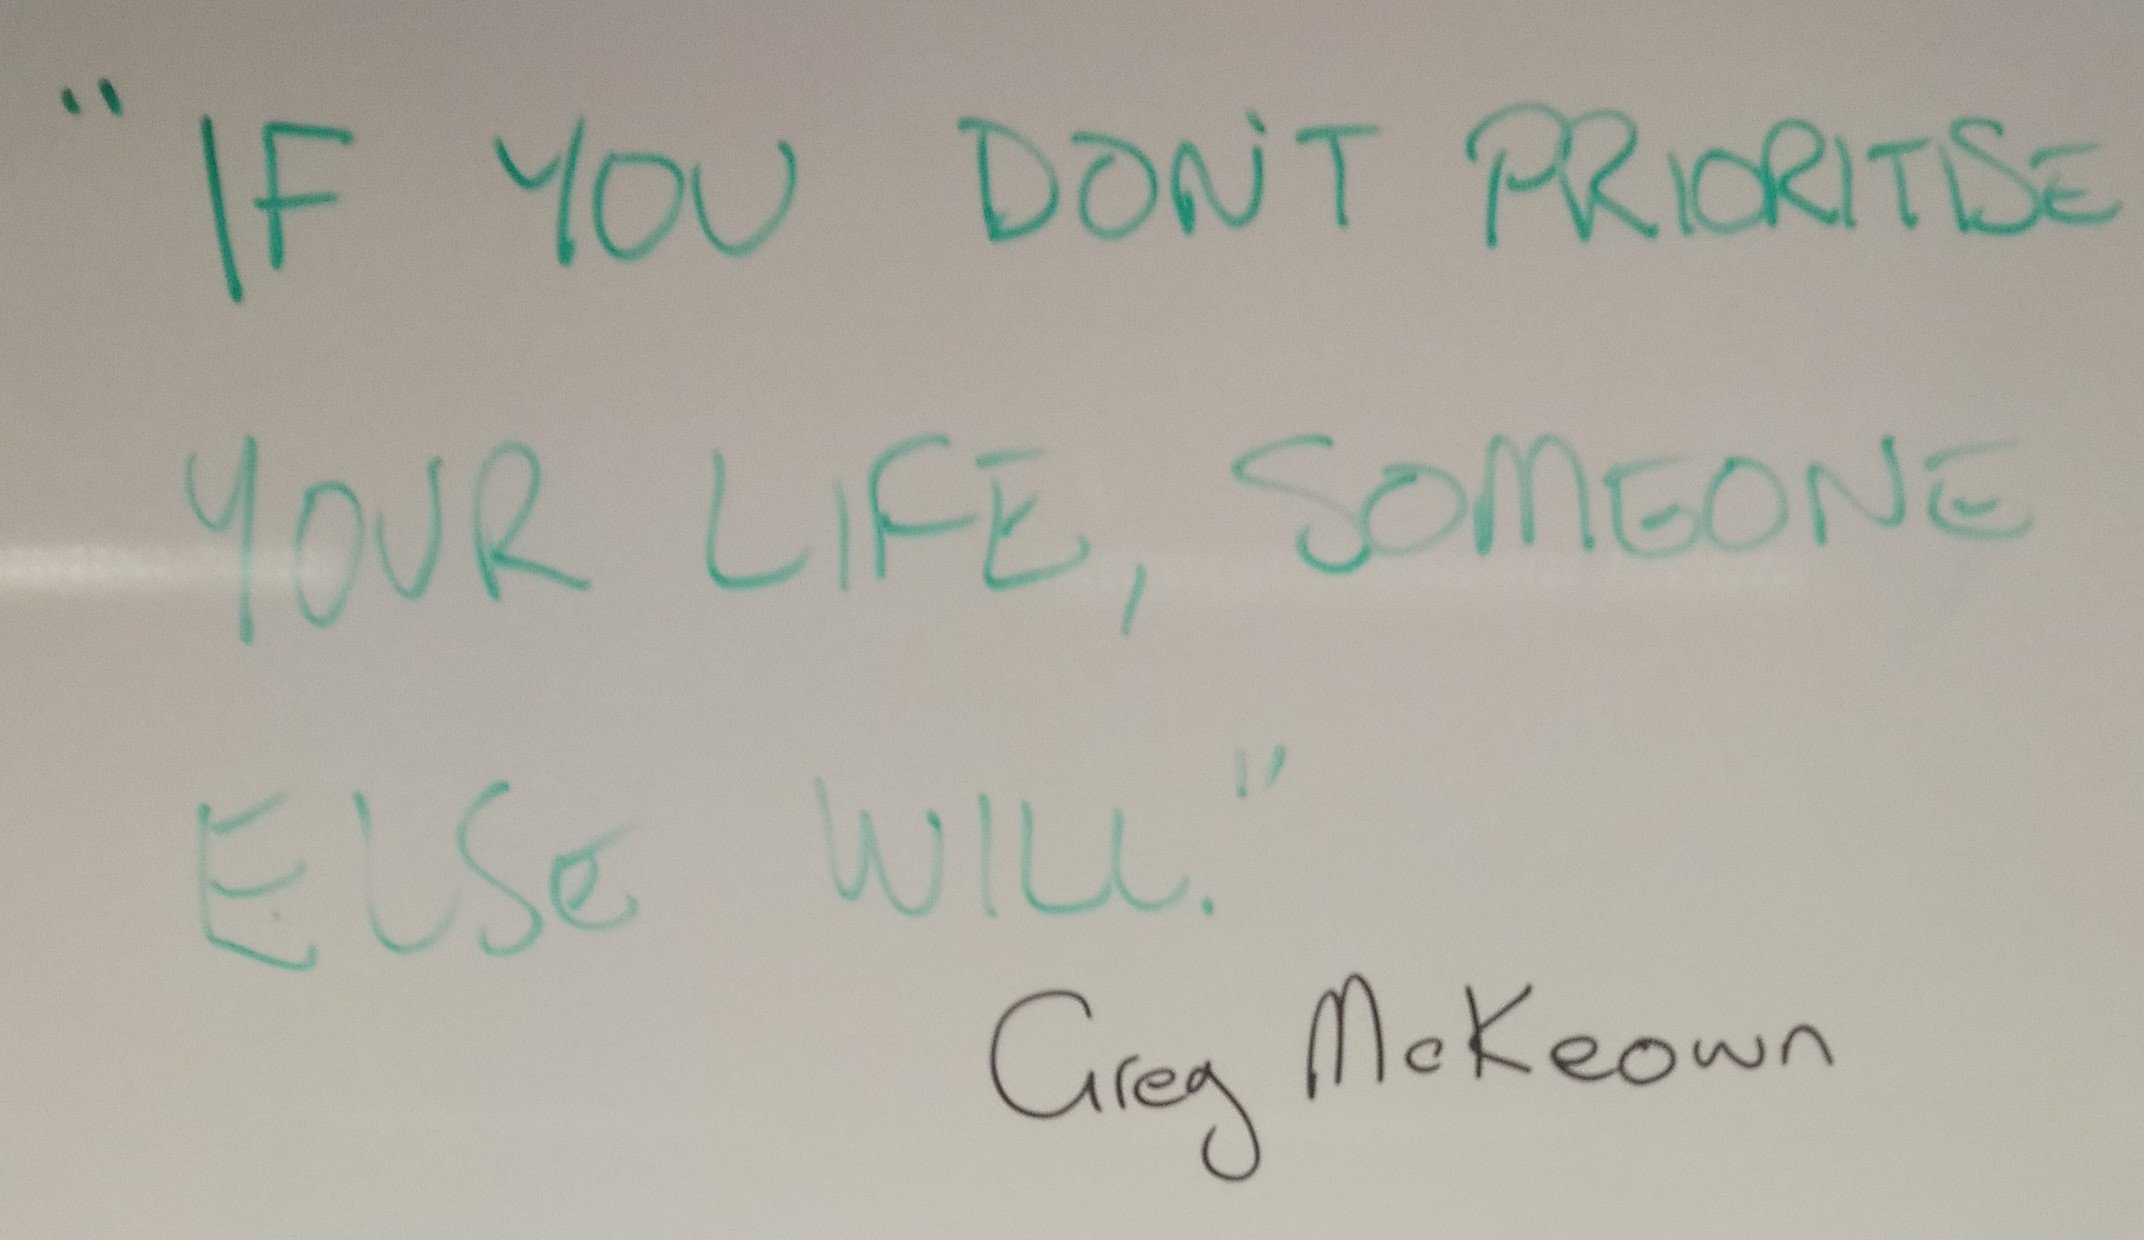 "IF YOU DON'T PRIORITISE
YOUR LIFE, SOMEONE
ELSE WILL."
Greg McKeown